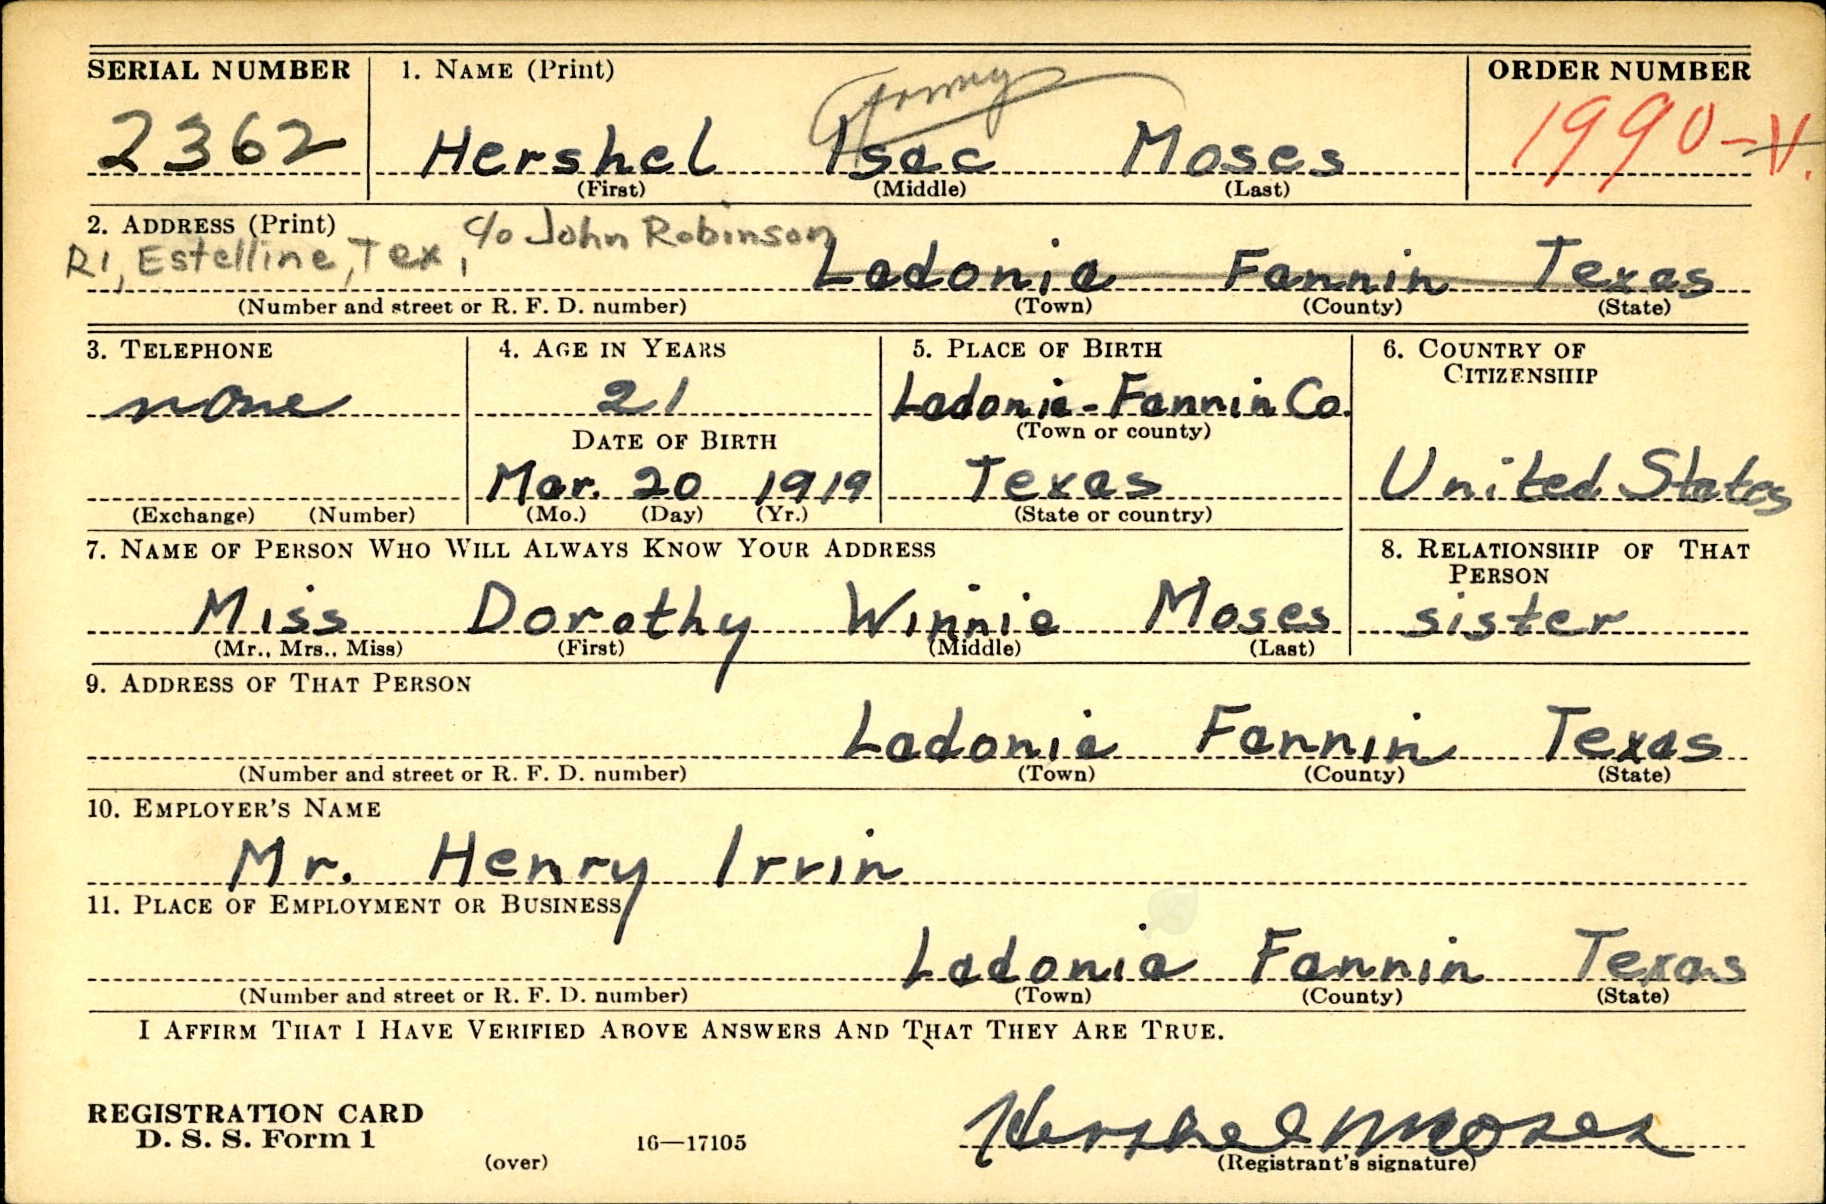 SERIAL NUMBER 1. NAME (Print) ORDER NUMBER
2362 Hershel Isac Moses 1990-V.
(First) (Middle) (Last)
2. ADDRESS (Print)
R1, Estelline, Tex, c/o John Robinson
Ladonia Fannin Texas
(Number and street or R. F. D. number) (Town) (County) (State)
3. TELEPHONE 4. AGE IN YEARS 5. PLACE OF BIRTH 6. COUNTRY OF CITIZENSHIP
none 21 Ladonia-Fannin Co.
DATE OF BIRTH (Town or county)
Mar. 20 1919 Texas United States
(Exchange) (Number) (Mo.) (Day) (Yr.) (State or country)
7. NAME OF PERSON WHO WILL ALWAYS KNOW YOUR ADDRESS 8. RELATIONSHIP OF THAT PERSON
Miss Dorothy Winnie Moses sister
(Mr., Mrs., Miss) (First) (Middle) (Last)
9. ADDRESS OF THAT PERSON
Ladonia Fannin Texas
(Number and street or R. F. D. number) (Town) (County) (State)
10. EMPLOYER'S NAME
Mr. Henry Irvin
11. PLACE OF EMPLOYMENT OR BUSINESS
Ladonia Fannin Texas
(Number and street or R. F. D. number) (Town) (County) (State)
I AFFIRM THAT I HAVE VERIFIED ABOVE ANSWERS AND THAT THEY ARE TRUE.
REGISTRATION CARD
D. S. S. Form 1 Hershel Moses
(over) 16—17105 (Registrant's signature)